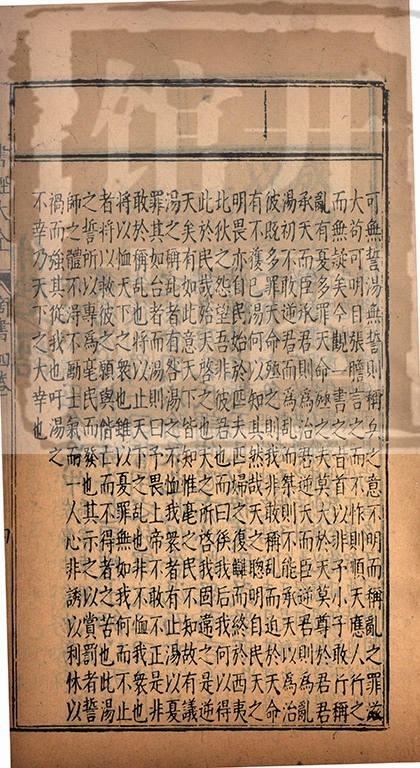 可無誓湯無誓則稱兵之意不明而稱亂之罪滋
大苟可明目張膽言之而不怍則順天應人行之
而無歉矣今觀一書之㫖首以非予小子敢行稱
亂有夏多罪天命殛之夫莫大於天莫尊於君
承天而臣逆君則爲治君逆天而臣逆君則爲亂
湯初不敢逆君而爲亂而桀則不能承天以爲治
彼既多罪天命殛之則我非敢稱亂而迫於天命
有不獲已湯何以知其然哉天之聰明自民天之
明畏亦自民始於匹夫匹婦之復讎而終於西夷
北狄之怨望吾非彼君而曰徯我后我何以得
此於民哉始天啓之也天之所啓我因違之是逆
天矣有此意天下皆知惟亳之民不知故有憂議
湯之稱亂者有咎湯之不恤我衆者有止
罪其如台者而湯則曰予畏上帝不敢不正是非
敢於稱亂也將以止天下之亂也非不恤我衆也
將以恤天下之衆也雖以憂罪無如我何而不止
者將以救彼顛與偕亡不得已者之苦也此湯
之誓所以專爲亳民而發也其示之以賞罰者誓
師之體其不得不勵士氣而一人心非誘以利休以
禍而強其從我也吁湯之
不幸乃天下之大幸也
書經大全 商書四卷